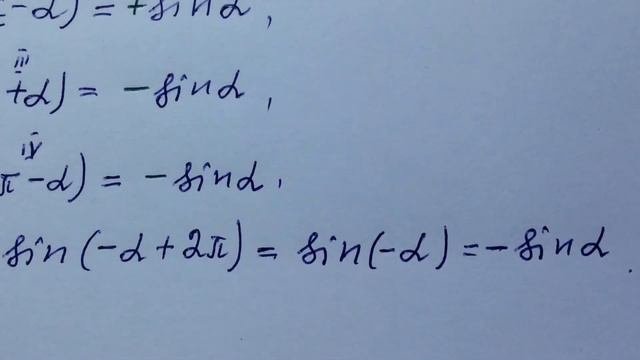 -α) = +sin α,
III
+α) = -sin α,
IV
π -α) = -sin α.
sin(-α + 2π) = sin(-α) = -sin α.